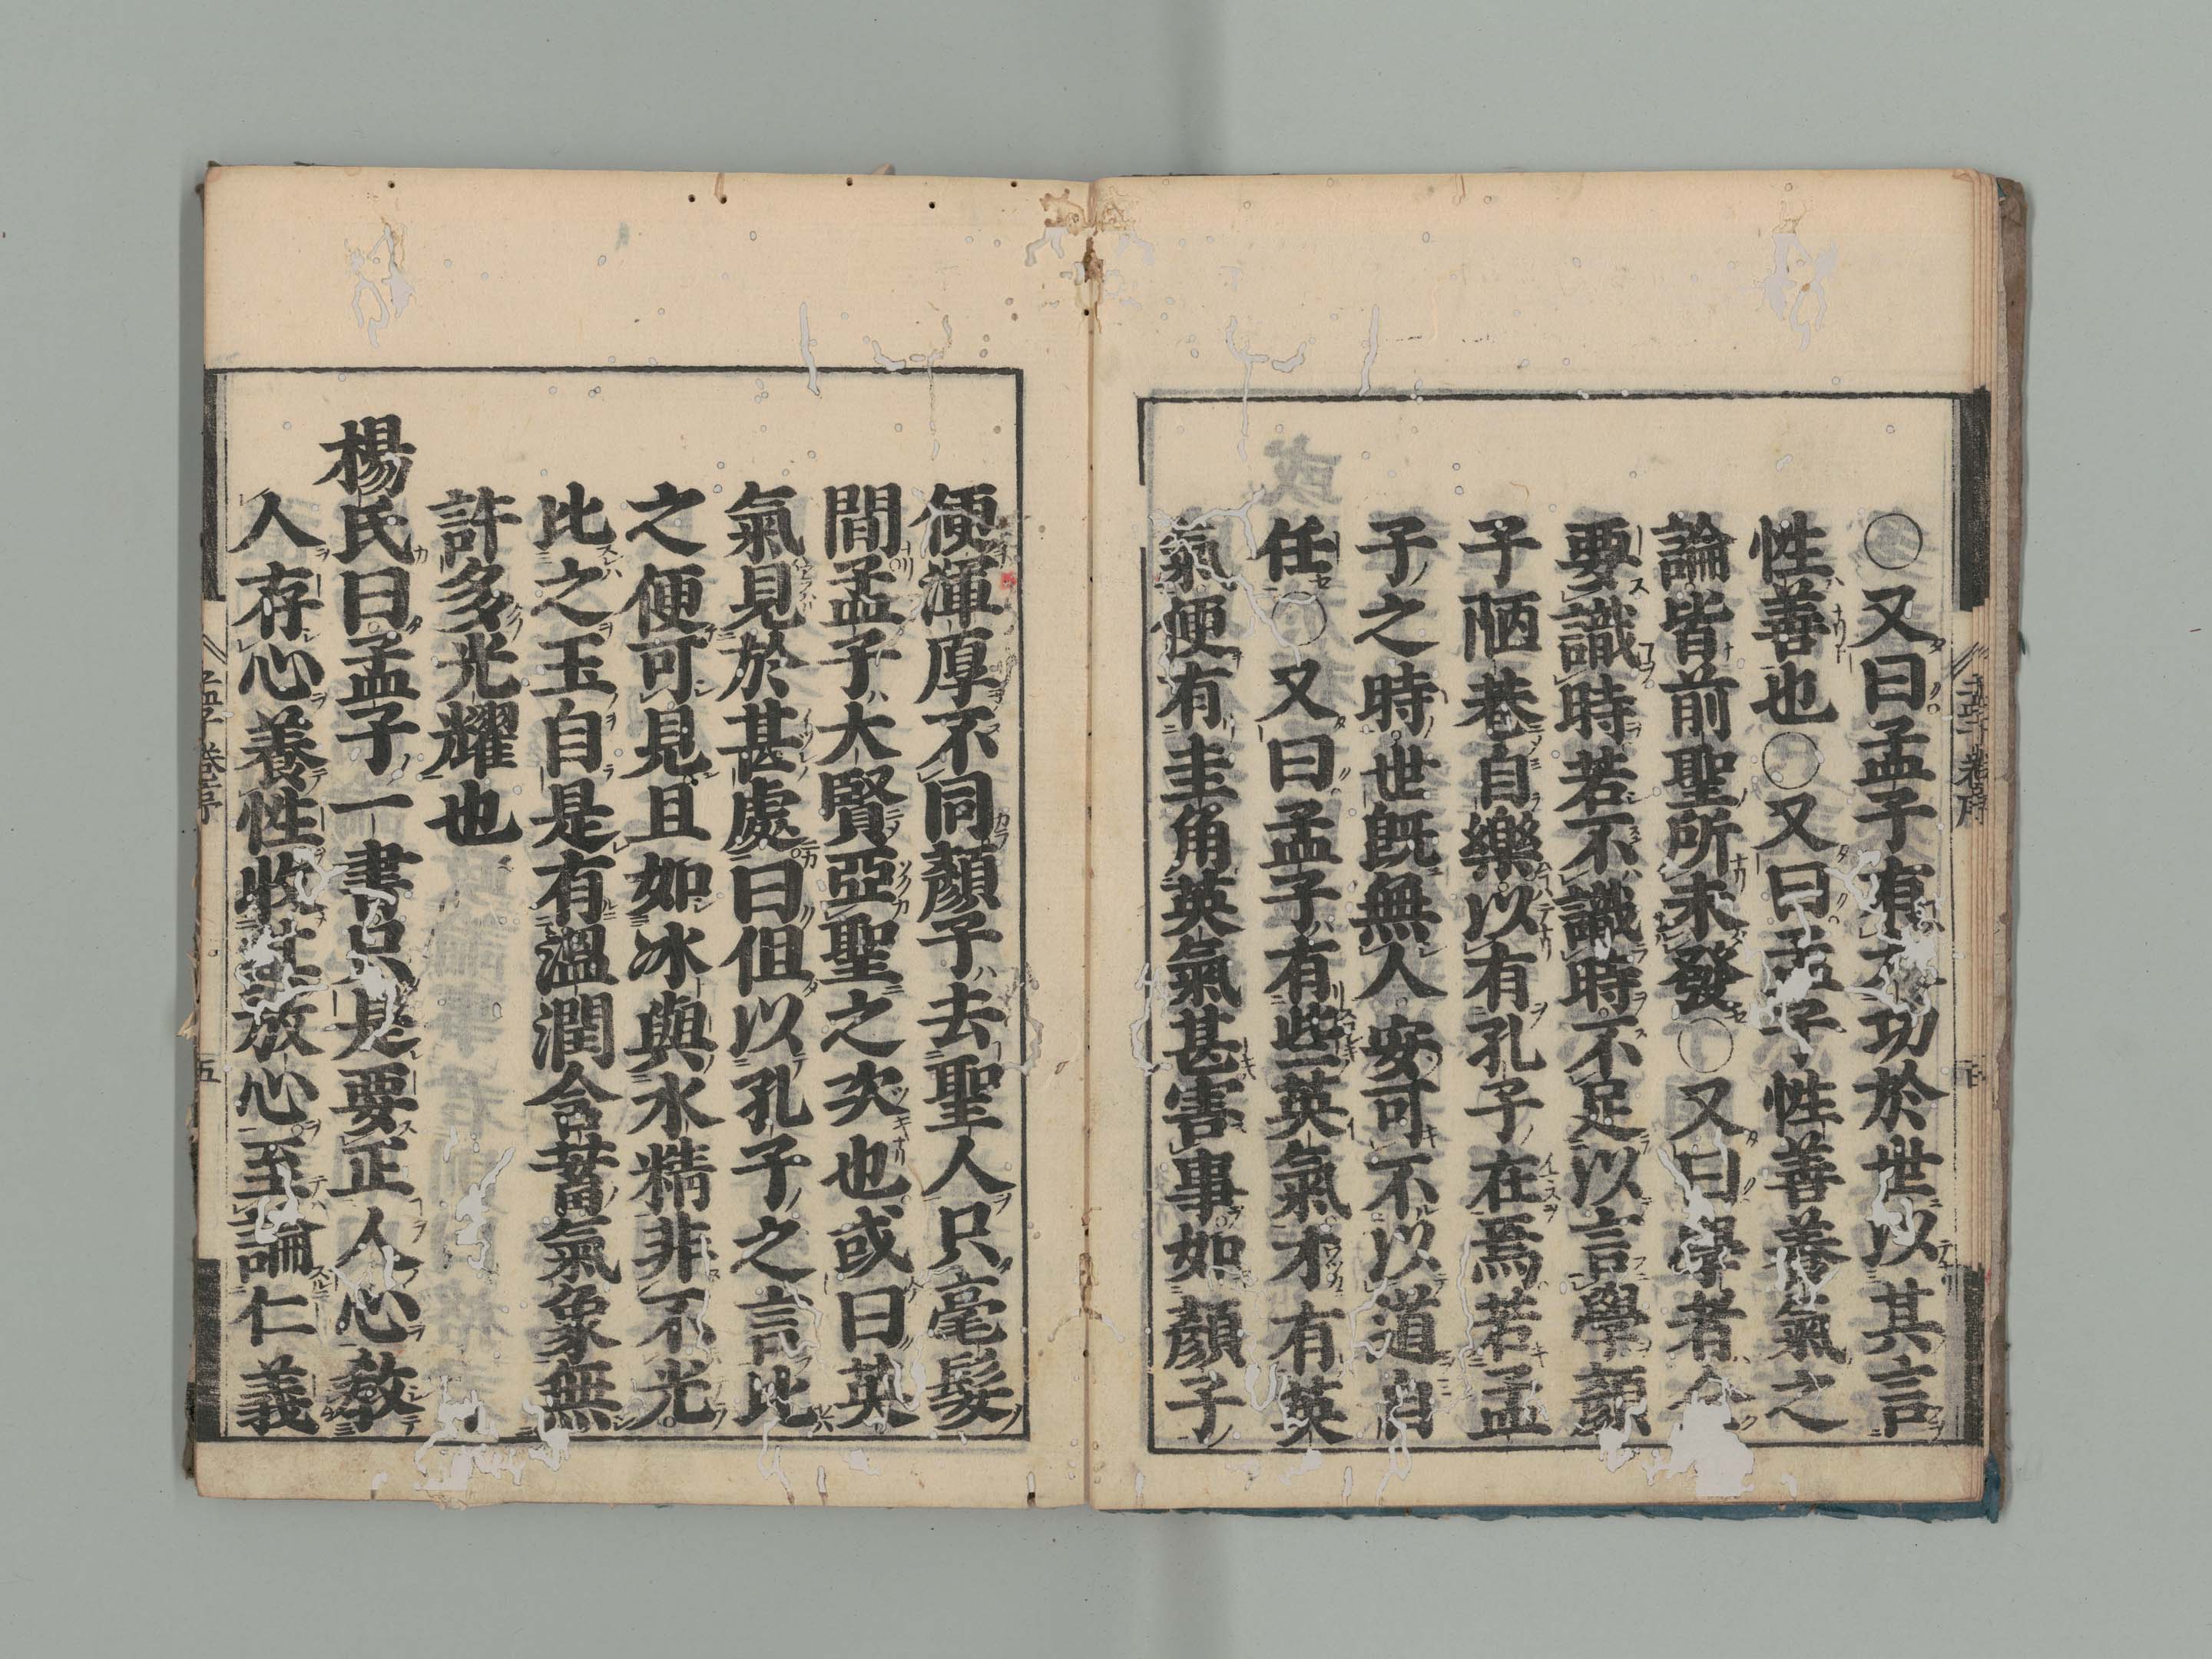 ○又曰孟子有大功於世以其言
性善也○又曰孟子性善養氣之
論皆前聖所未發○又曰學者全
要識時若不識時不足以言學顏
子陋巷自樂以有孔子在焉若孟
子之時世既無人安可不以道自
任○又曰孟子有些英氣才有英
氣便有圭角英氣甚害事如顏子
便渾厚不同顏子去聖人只毫髮
間孟子大賢亞聖之次也或曰英
氣見於甚處曰但以孔子之言比
之便可見且如冰與水精非不光
比之玉自是有溫潤含蓄氣象無
許多光耀也
楊氏曰孟子一書只是要正人心教
人存心養性收其放心至論仁義
孟子 卷序
五